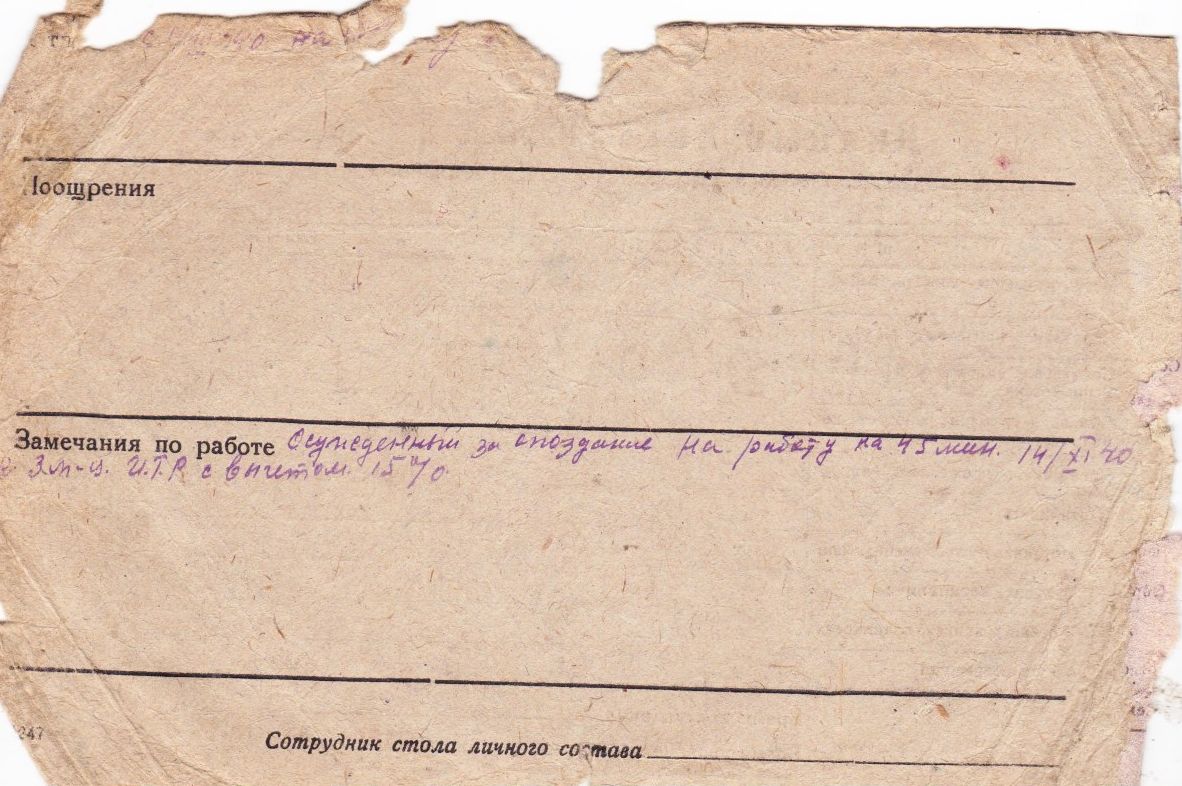 на
Поощрения
Замечания по работе Осужденный за опоздание на работу на 45 мин. 14/XI 40
3 м-ц. И.Т.Р. с вычетом 15%
247
Сотрудник стола личного состава